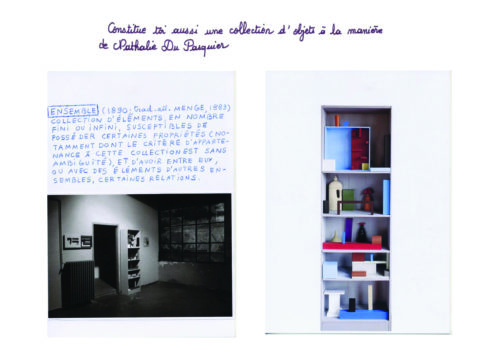 Constitue toi aussi une collection d'objets à la manière
de Nathalie Du Pasquier
ENSEMBLE (1890; trad. all. MENGE, 1883)
COLLECTION D'ÉLÉMENTS, EN NOMBRE
FINI OU INFINI, SUSCEPTIBLES DE
POSSÉDER CERTAINES PROPRIÉTÉS (NO-
TAMMENT DONT LE CRITÈRE D'APPARTE-
NANCE À CETTE COLLECTION EST SANS
AMBIGUITÉ), ET D'AVOIR ENTRE EUX,
OU AVEC DES ÉLÉMENTS D'AUTRES EN-
SEMBLES, CERTAINES RELATIONS.